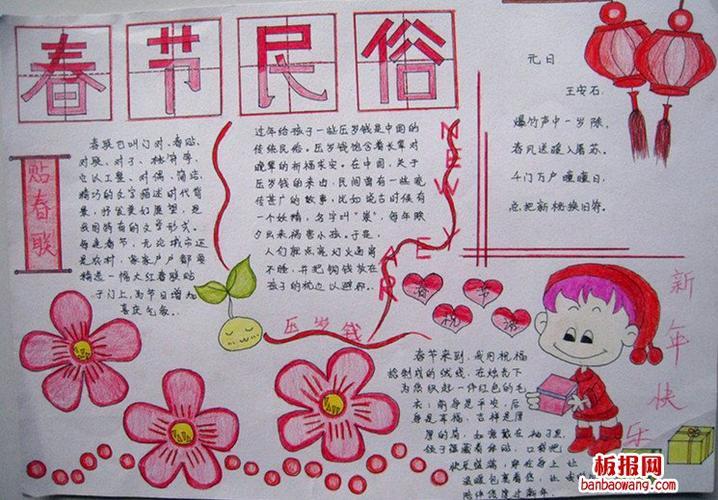 春节民俗
贴春联
春联也叫门对、春贴、
对联、对子、桃符等,
它以工整、对偶、简洁、
精巧的文字描述时代背
景,抒发美好愿望,是
我国特有的文学形式。
每逢春节,无论城市还
是农村,家家户户都要
精选一幅大红春联贴
于门上,为节日增加
喜庆气氛。
过年给孩子一些压岁钱是中国的
传统民俗。压岁钱饱含着长辈对
晚辈的祈福求安。在中国,关于
压岁钱的来由,民间曾有一些流
传甚广的故事,比如说古时候有
一个妖精,名字叫"祟",每年除
夕出来祸害小孩。于是,
人们就点亮灯火通宵
不睡,并把铜钱放在
孩子的枕边以避邪。
压岁钱
NEW
YEAR
元日
王安石
爆竹声中一岁除,
春风送暖入屠苏。
千门万户曈曈日,
总把新桃换旧符。
春节祝福
春节来到,我用祝福
绘制成的优线,在烛光下
为您织起一件红色的毛
衣:前身是平安,后
身是幸福,吉祥是厚
厚的肩,如意戴在袖子里,
领子蕴藏着体贴,口袋把
快乐盛满,穿在身上,让
温暖包裹着你,让
新年快乐
板报网
banbaowang.com